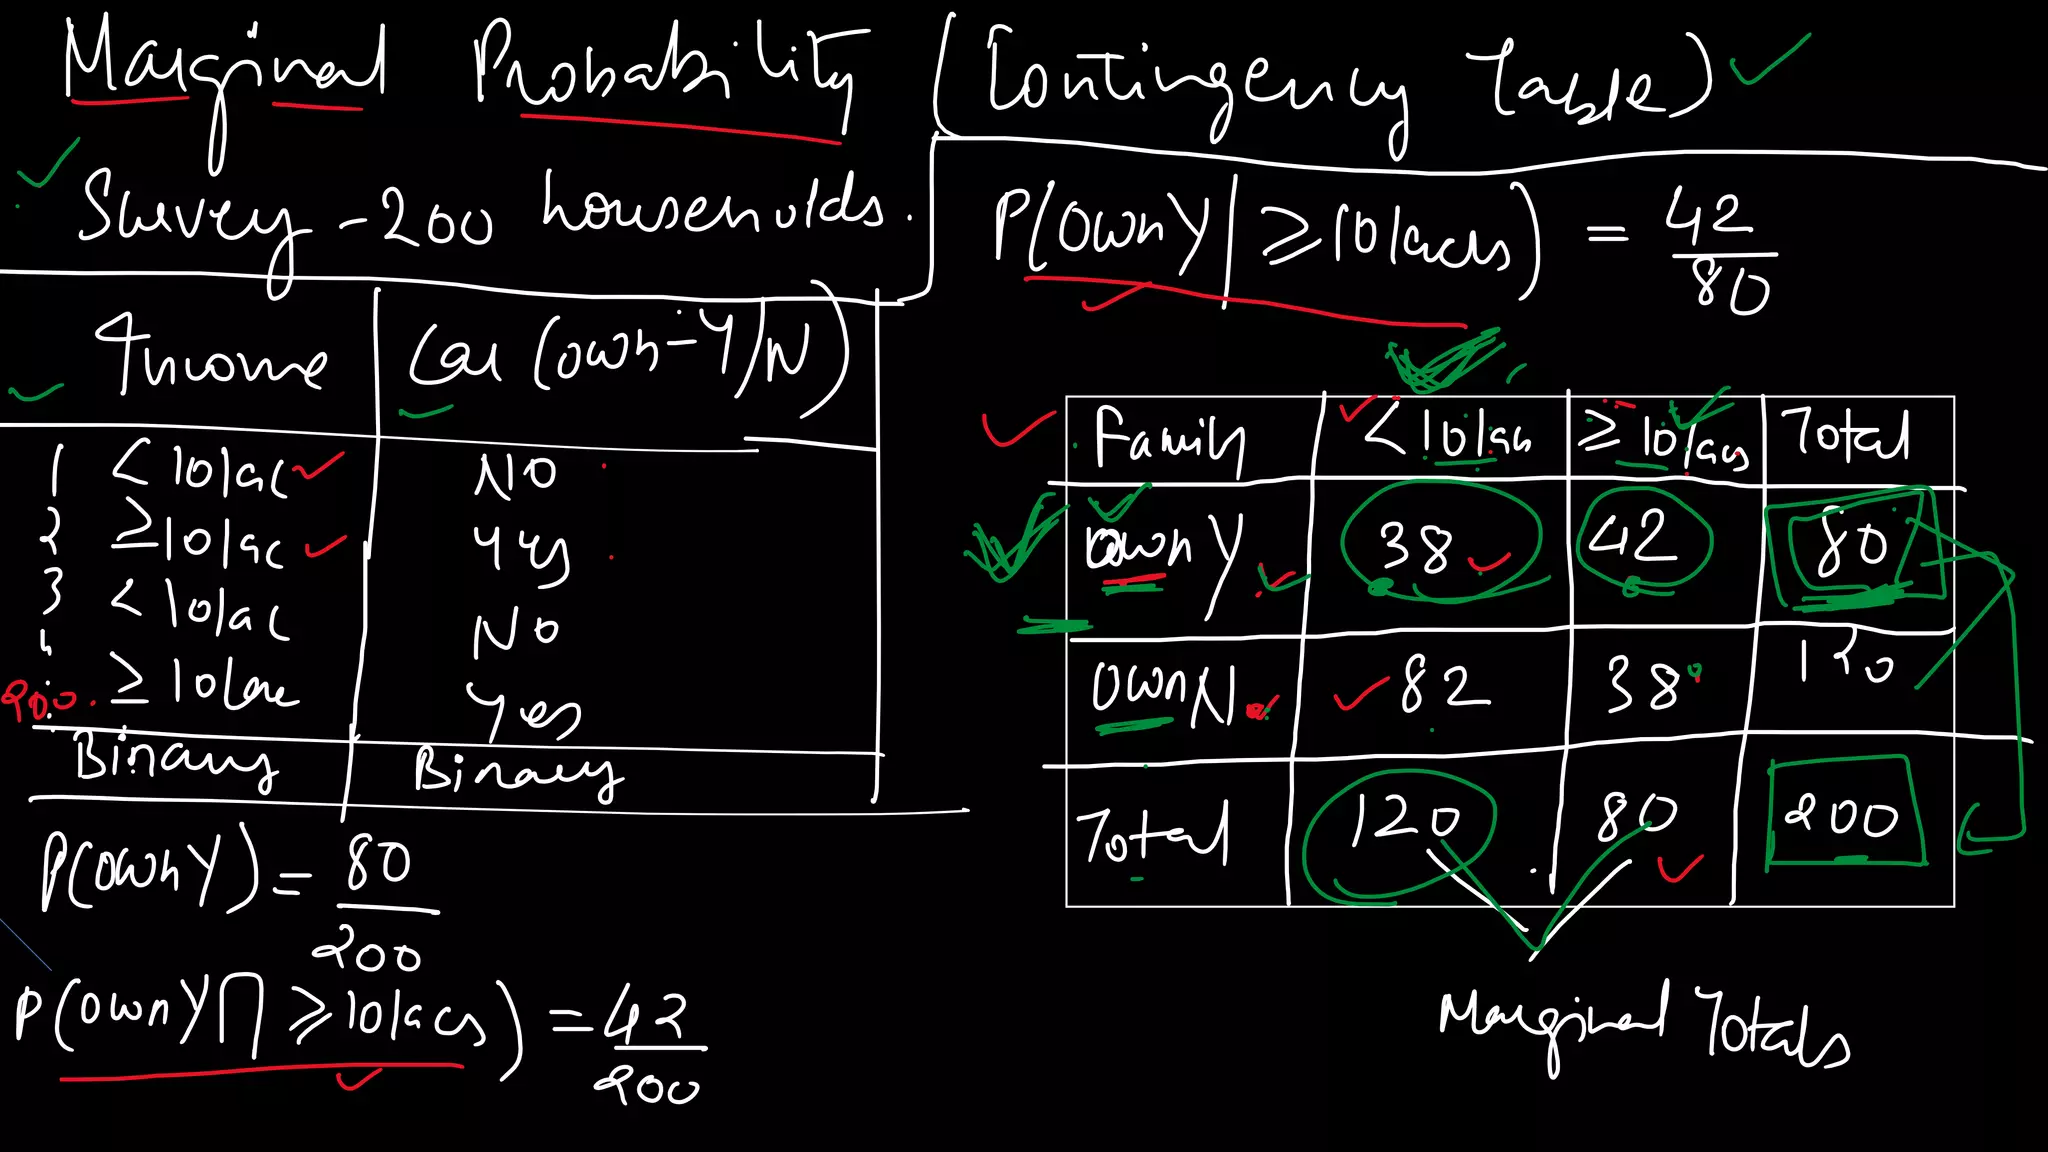 Marginal Probability (Contingency Table)
Survey - 200 households.
P(own Y | ≥ 10 lacs) = 42/80
Income Car (own - Y/N)
1 < 10 lac No
2 ≥ 10 lac Yes
3 < 10 lac No
4 ≥ 10 lac Yes
200.
Binary Binary
P(own Y) = 80/200
P(own Y ∩ ≥ 10 lacs) = 42/200
Family < 10 lac ≥ 10 lacs Total
own Y 38 42 80
own N 82 38 120
Total 120 80 200
Marginal Totals